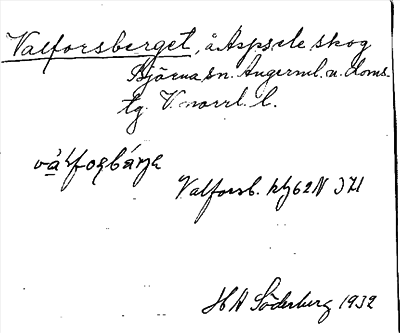 Valforsberget, å Aspsele skog
Björna sn. Ångerml. n. doms.
tg. V.norrl. l.
Valforsb. 62N
HA Söderberg 1932